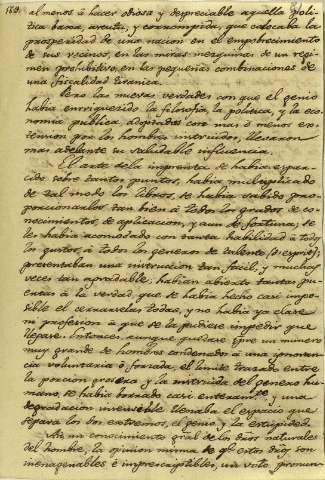 153.
al menos á hacer odiosa y depreciable aquella poli
tica baxa, astuta, y corrompida, que colocaba la
prosperidad de una nacion en el empobrecimiento
de sus vecinos, en las miras mezquinas de un regi-
men prohibitivo, en las pequeñas combinaciones de
una fiscalidad tiranica.
Pero las nuevas verdades con que el genio
habia enriquecido la filosofia, la politica, y la eco
nomia publica, adoptadas con mas ó menos ex-
tension por los hombres instruidos, llevaron
mas adelante su saludable influencia.
El arte de la imprenta se habia espar-
cido sobre tantos puntos, habia multiplicado
de tal modo los libros, se habia sabido pro-
porcionarlos tan bien á todos los grados de co-
nocimientos, de aplicacion, y aun de fortuna; se
les habia acomodado con tanta habilidad á todos
los gustos, á todos los generos de talento (d'esprit),
presentaban una instruccion tan facil, y muchas
veces tan agradable, habian abierto tantas pu-
ertas á la verdad, que se habia hecho casi impo-
sible el cerrarselas todas, y no habia ya clase
ni profesion á que se la pudiese impedir que
llegase. Entonces, aunque quedase spre un numero
muy grande de hombres condenado á una ignoran-
cia voluntaria ó forzada, el limite trazado entre
la porcion grosera y la instruida del genero hu-
mano, se habia borrado casi enteramte. y una
degradacion insensible llenaba el espacio que
separa los dos extremos, el genio, y la estupidez.
Asi un conocimiento gral de los dros naturales
del hombre, la opinion misma de qe. estos dros son
inenagenables é imprescriptibles, un voto pronun-